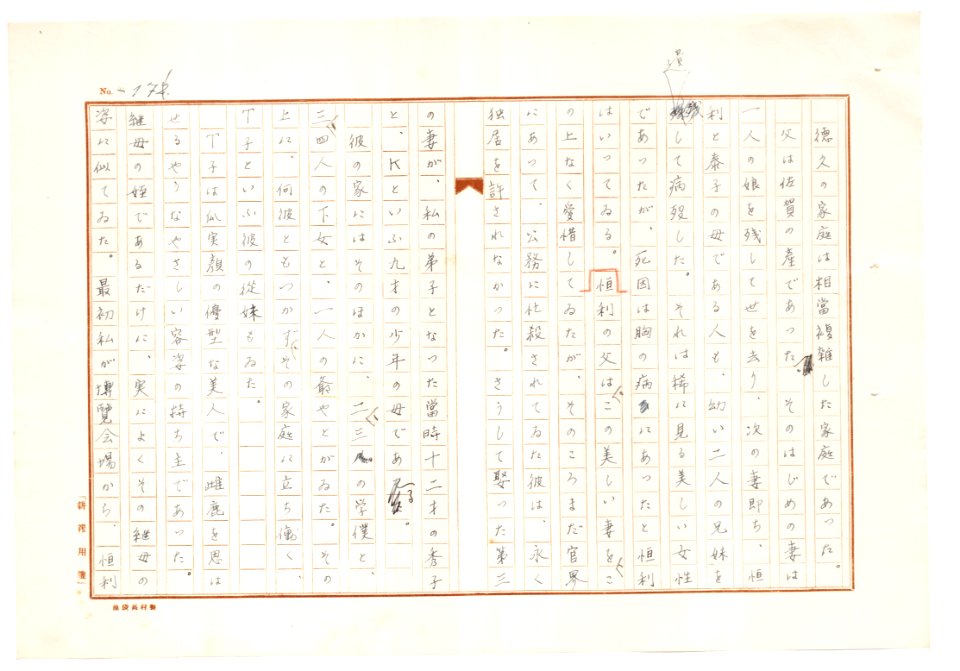 No. 174
遺
德久の家庭は相當複雑した家庭であった。
父は佐賀の産であった。そのはじめの妻は
一人の娘を残して世を去り、次の妻即ち、恒
利と泰子の母である人も、幼い二人の兄妹を
して病歿した。それは稀に見る美しい女性
であったが、死因は胸の病にあったと恒利
はいってゐる。恒利の父はこの美しい妻をこ
の上なく愛惜してゐたが、そのころまだ官界
にあって、公務に忙殺されてゐた彼は、永く
独居を許されなかった。さうして娶った第三
の妻が、私の弟子となった當時十二才の秀子
と、Kといふ九才の少年の母である。
彼の家にはそのほかに、二三の学僕と、
三四人の下女と、一人の爺やとがゐた。その
上に、何彼ともつかずその家庭に立ち働く、
下子といふ彼の従妹もゐた。
下子は瓜実顔の優型な美人で、雌鹿を思は
せるやうなやさしい容姿の持ち主であった。
継母の姪であるだけに、実によくその継母の
姿に似てゐた。最初私が博覧会場から、恒利
「錦袴用箋」